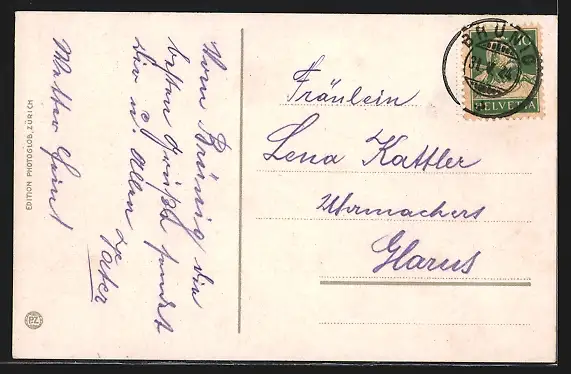 Vom Brünig die
besten Grüße sendet
Dir u. Allen
Vater
Wetter heint
EDITION PHOTOGLOB, ZÜRICH
PZ
BRÜNIG
10
HELVETIA
Fräulein
Lena Kattler
Uhrmachers
Glarus